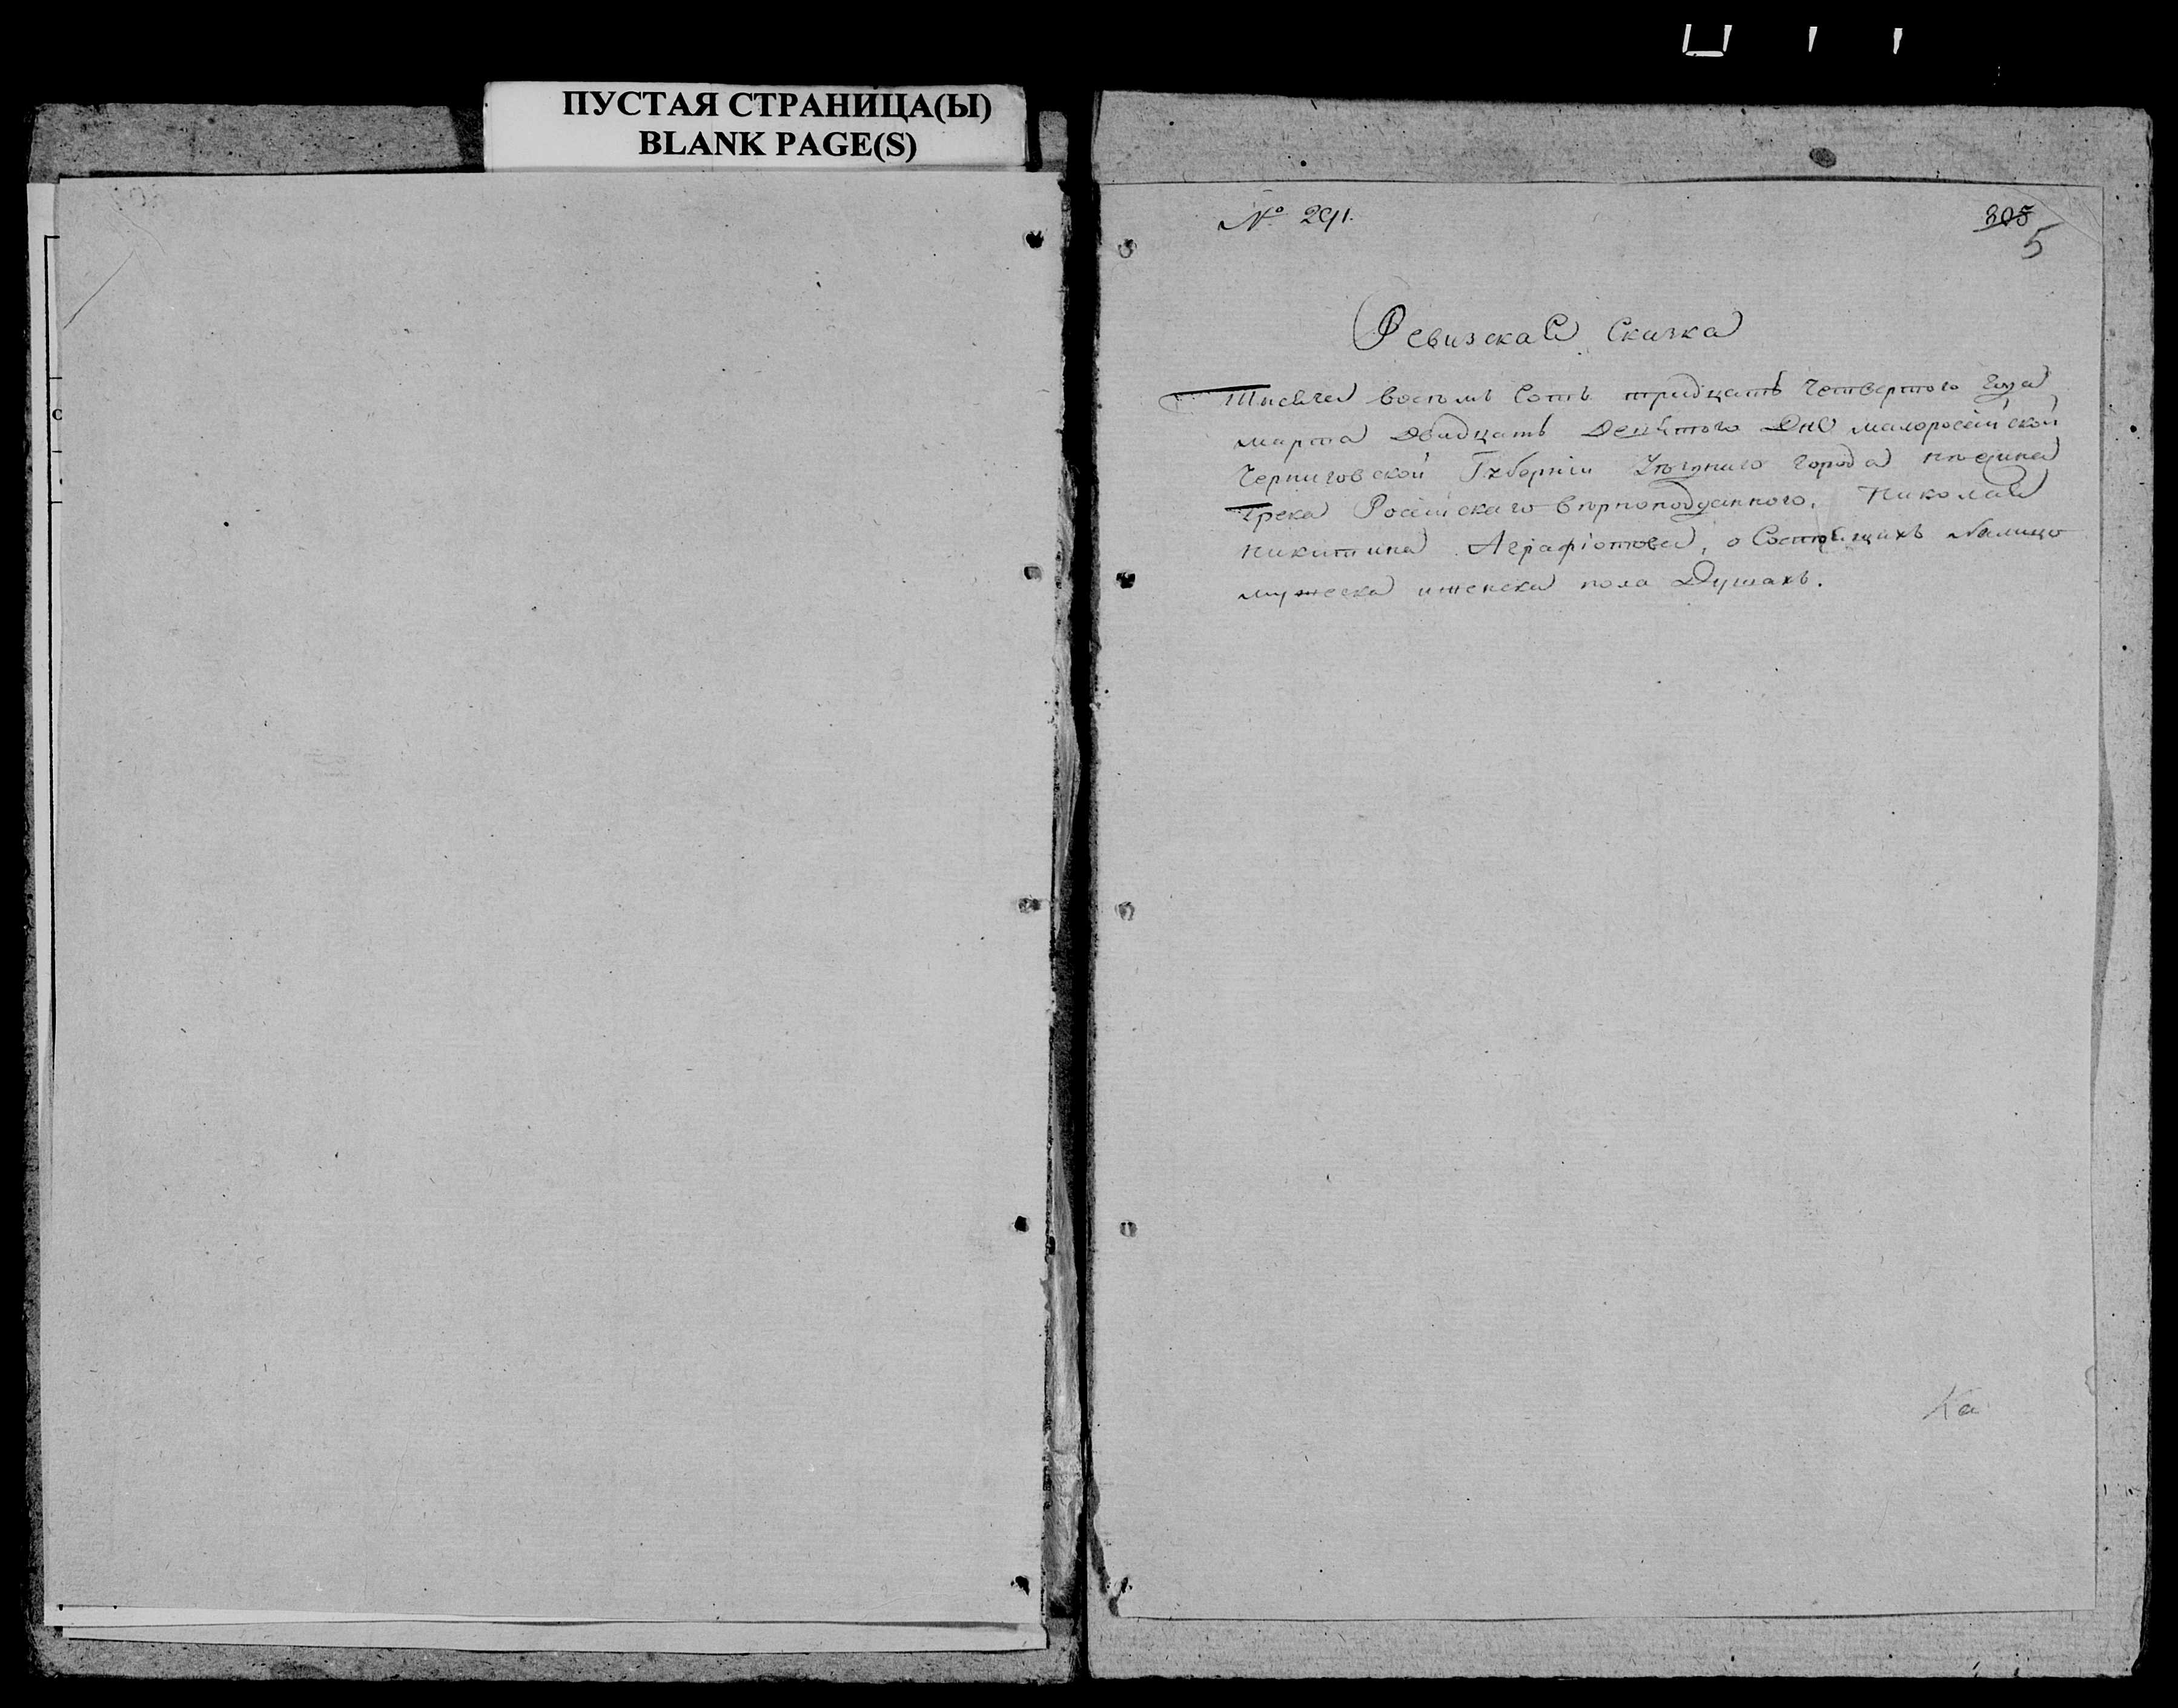 ПУСТАЯ СТРАНИЦА(Ы)
BLANK PAGE(S)
№ 291.
305
5
Ревизская Сказка
Тисяча восемь Сотъ тридцать Четвертого Года
марта двадцать Девятого Дня малоросийской
Черниговской Губернiи Уездного города нѣжина
Грека Росийскаго вѣрноподданного, Николая
никитина Аграфiотова, о Состоящихъ налицо
мужеска иженска пола Душахъ.
Ка